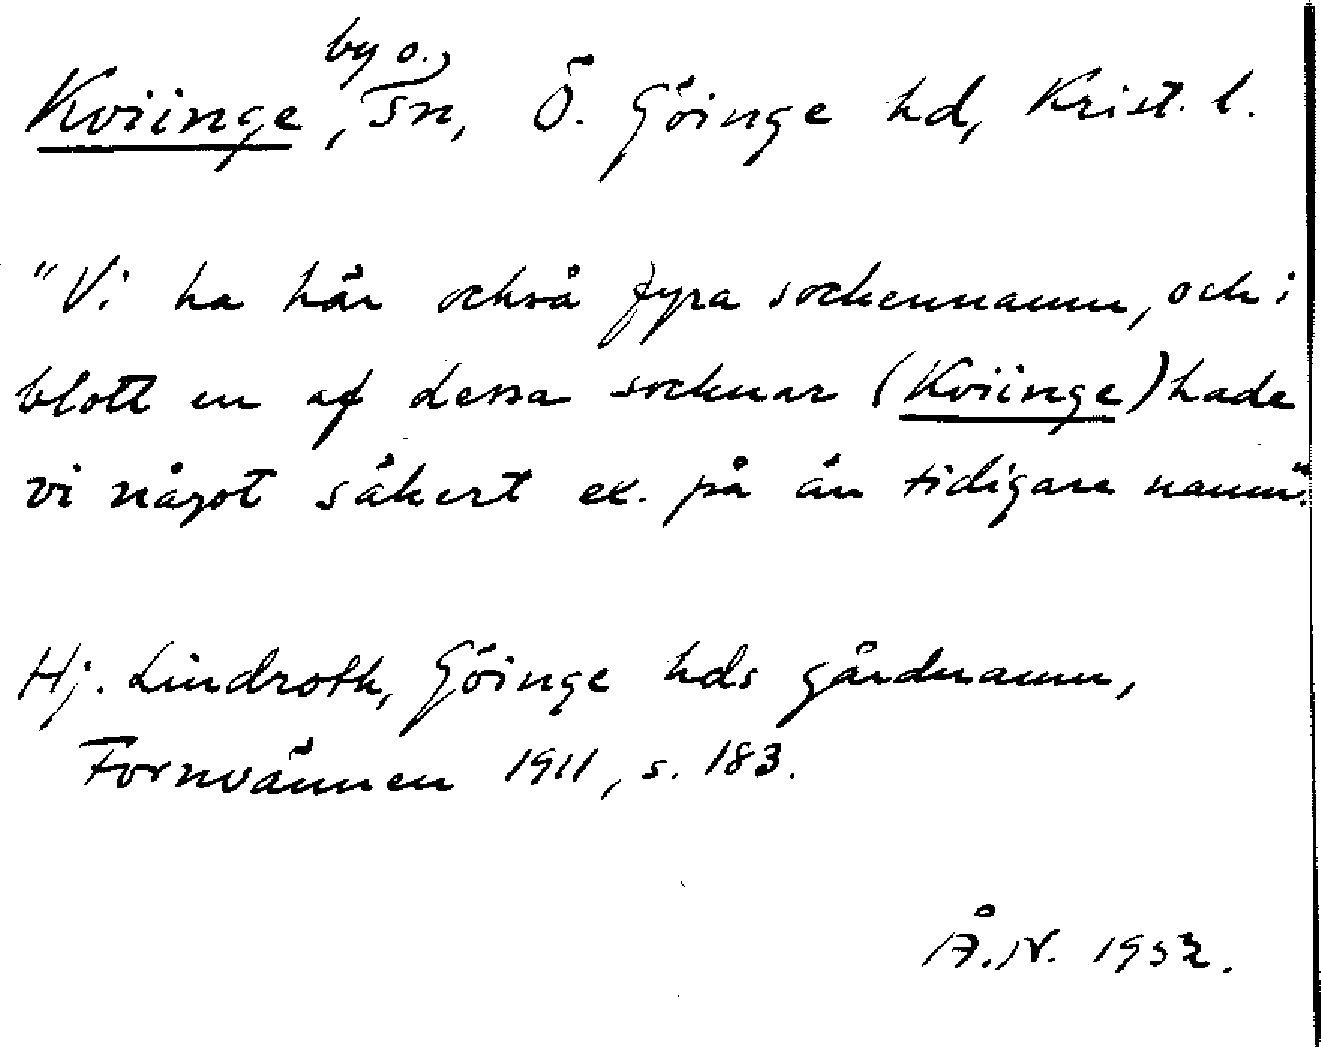 Kviinge, by o. sn, Ö. Göinge hd, Krist. l.
"Vi ha här också fyra sockennamn, och i
blott en af dessa socknar (Kviinge) hade
vi något säkert ex. på än tidigare namn".
Hj. Lindroth, Göinge hds gårdnamn,
Fornvännen 1911, s. 183.
Å.N. 1932.